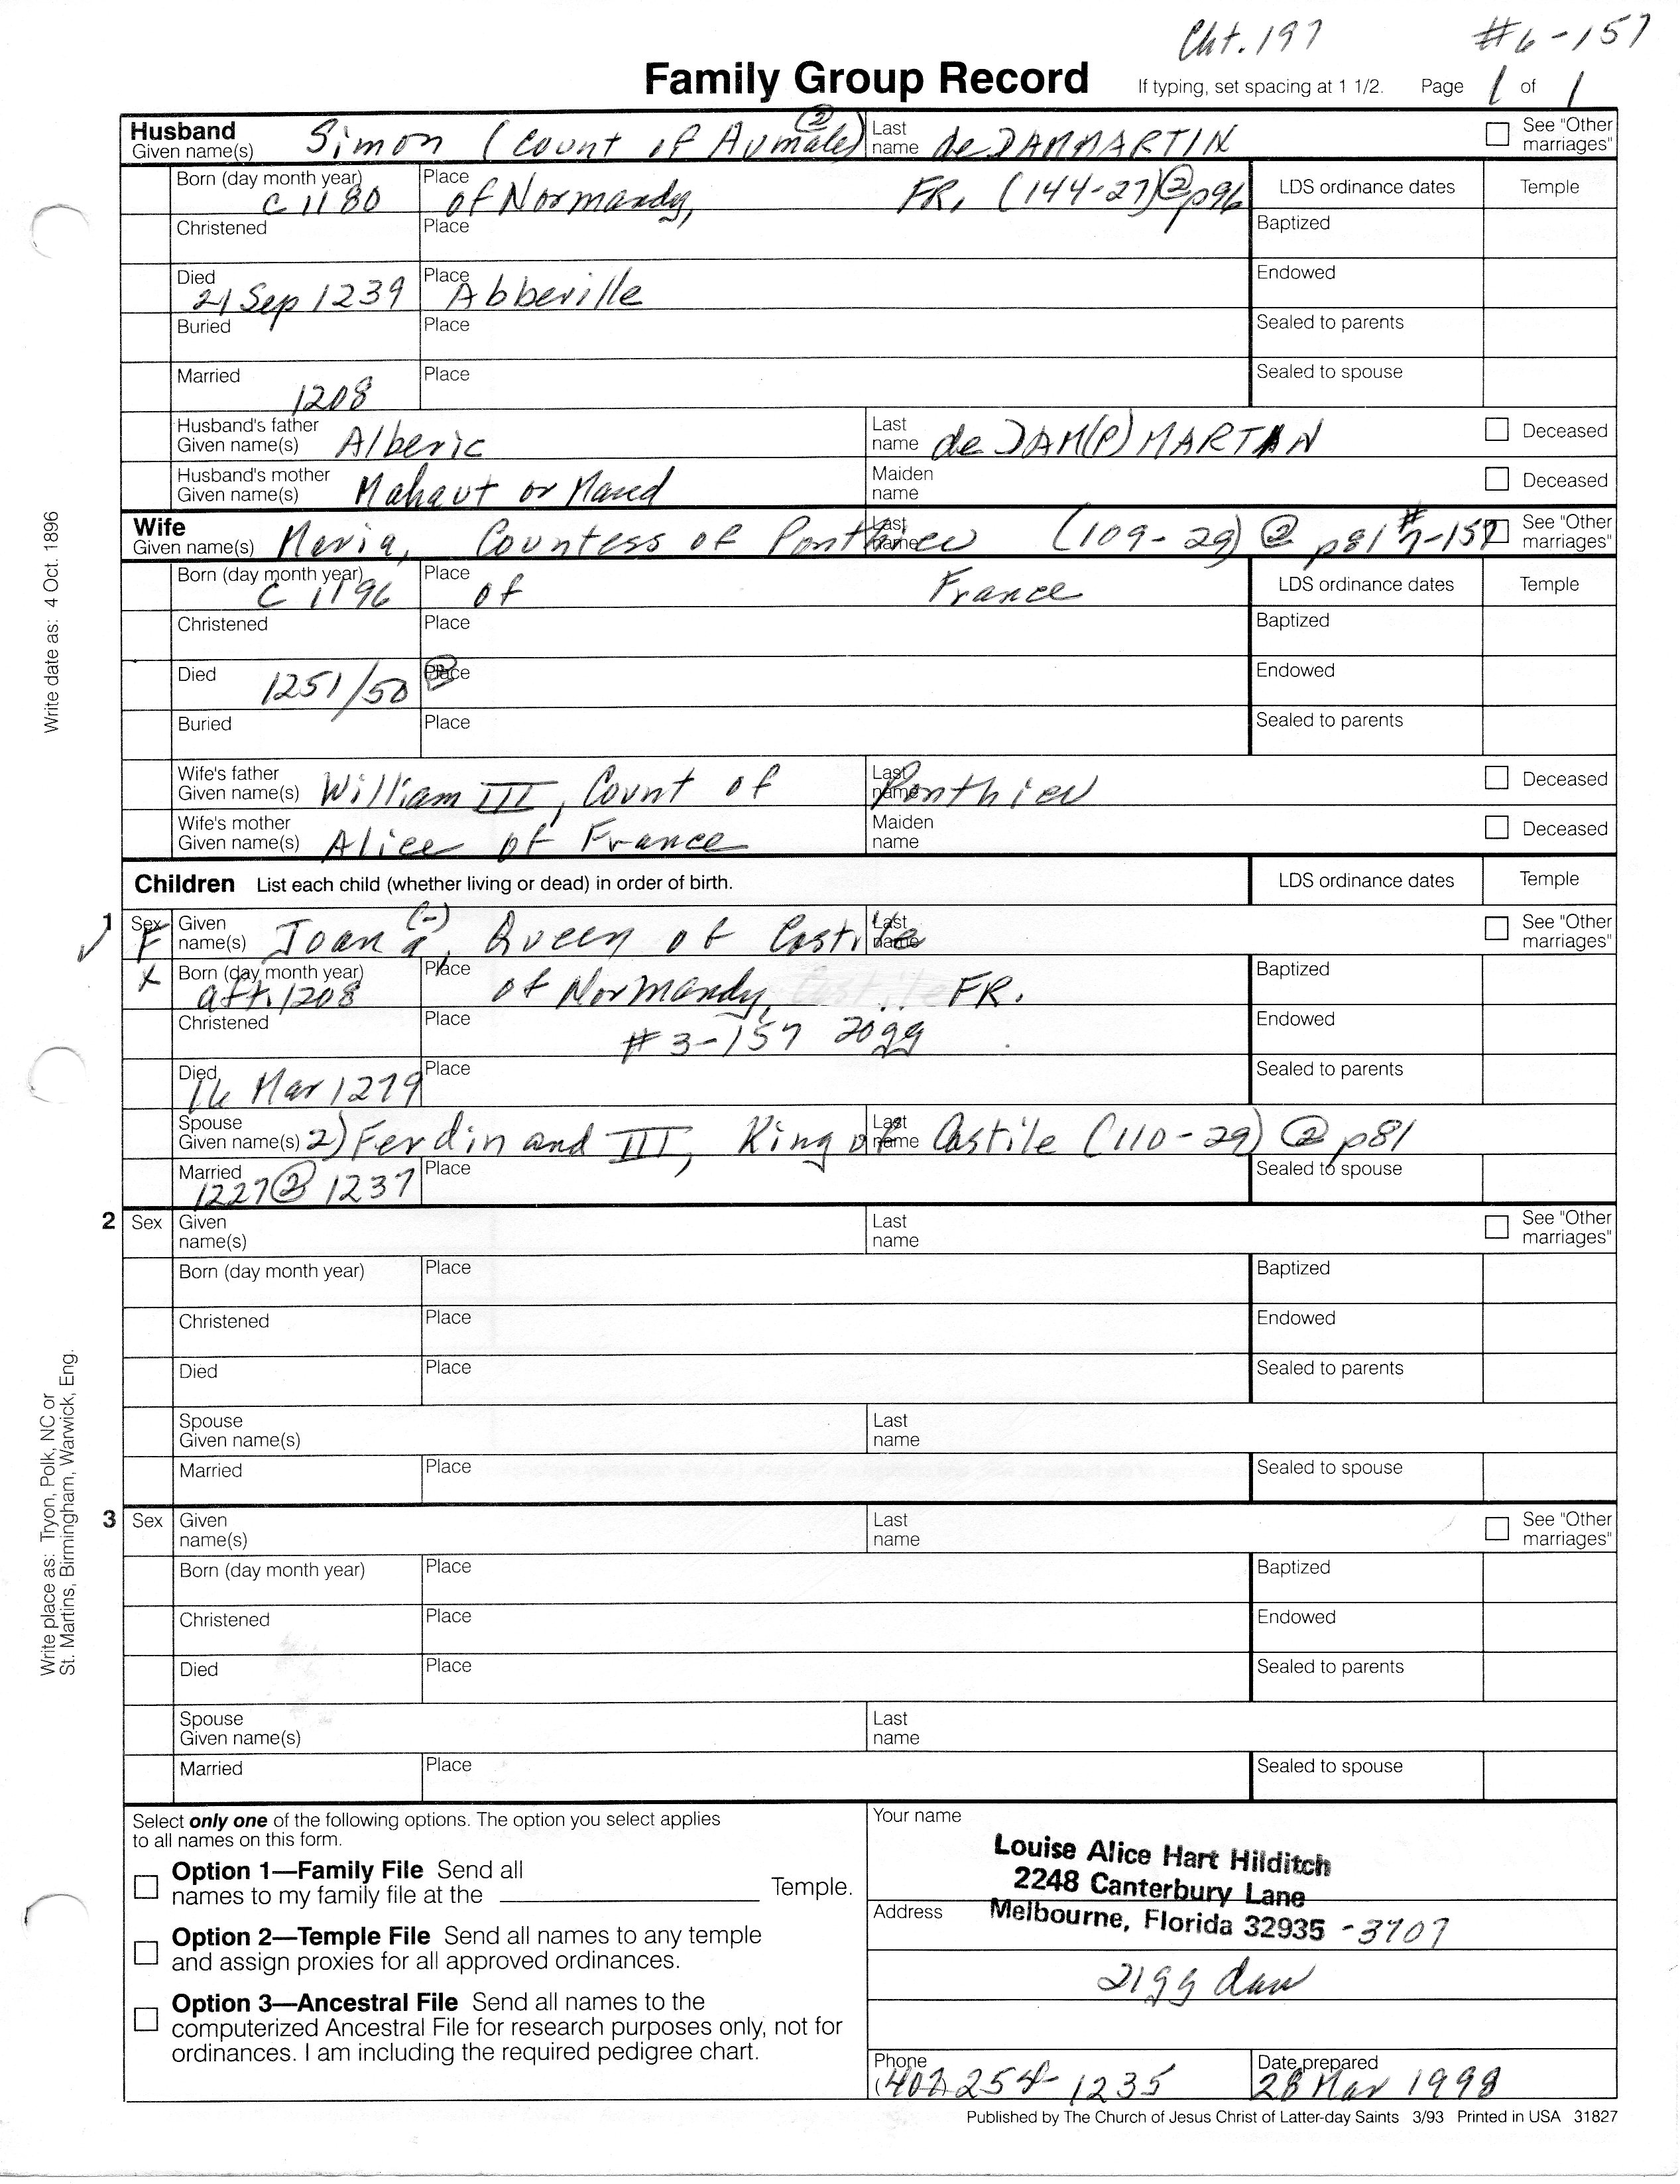 Cht. 197 #6-157
Family Group Record If typing, set spacing at 1 1/2. Page 1 of 1
Husband
Given name(s) Simon (Count of Aumale) ② Last name de DAMMARTIN See "Other marriages"
Born (day month year) c 1180 Place of Normandy, FR, (144-27)② p96 LDS ordinance dates Temple
Christened Place Baptized
Died 21 Sep 1239 Place Abbeville Endowed
Buried Place Sealed to parents
Married 1208 Place Sealed to spouse
Husband's father
Given name(s) Alberic Last name de DAM(P)MARTAN Deceased
Husband's mother
Given name(s) Mahaut or Maud Maiden name Deceased
Wife
Given name(s) Maria, Countess of Ponthieu Last name (109-29) ② p81 #7-157 See "Other marriages"
Born (day month year) c 1196 Place of France LDS ordinance dates Temple
Christened Place Baptized
Died 1251/50 Place ② Endowed
Buried Place Sealed to parents
Wife's father
Given name(s) William III, Count of Last name Ponthieu Deceased
Wife's mother
Given name(s) Alice of France Maiden name Deceased
Children List each child (whether living or dead) in order of birth. LDS ordinance dates Temple
1 Sex F Given name(s) Joan a (-), Queen of Castile Last name See "Other marriages"
X Born (day month year) aft. 1208 Place of Normandy, FR. Baptized
Christened Place #3-157 20gg Endowed
Died 16 Mar 1279 Place Sealed to parents
Spouse
Given name(s) 2) Ferdinand III, King of Last name Castile (110-29) ② p81
Married 1227② 1237 Place Sealed to spouse
2 Sex Given name(s) Last name See "Other marriages"
Born (day month year) Place Baptized
Christened Place Endowed
Died Place Sealed to parents
Spouse
Given name(s) Last name
Married Place Sealed to spouse
3 Sex Given name(s) Last name See "Other marriages"
Born (day month year) Place Baptized
Christened Place Endowed
Died Place Sealed to parents
Spouse
Given name(s) Last name
Married Place Sealed to spouse
Write date as: 4 Oct. 1896
Write place as: Tryon, Polk, NC or
St. Martins, Birmingham, Warwick, Eng.
Select only one of the following options. The option you select applies
to all names on this form.
Option 1—Family File Send all
names to my family file at the Temple.
Option 2—Temple File Send all names to any temple
and assign proxies for all approved ordinances.
Option 3—Ancestral File Send all names to the
computerized Ancestral File for research purposes only, not for
ordinances. I am including the required pedigree chart.
Your name
Louise Alice Hart Hilditch
2248 Canterbury Lane
Address Melbourne, Florida 32935 -3707
21gg dau
Phone (407 254-1235 Date prepared 28 Mar 1998
Published by The Church of Jesus Christ of Latter-day Saints 3/93 Printed in USA 31827